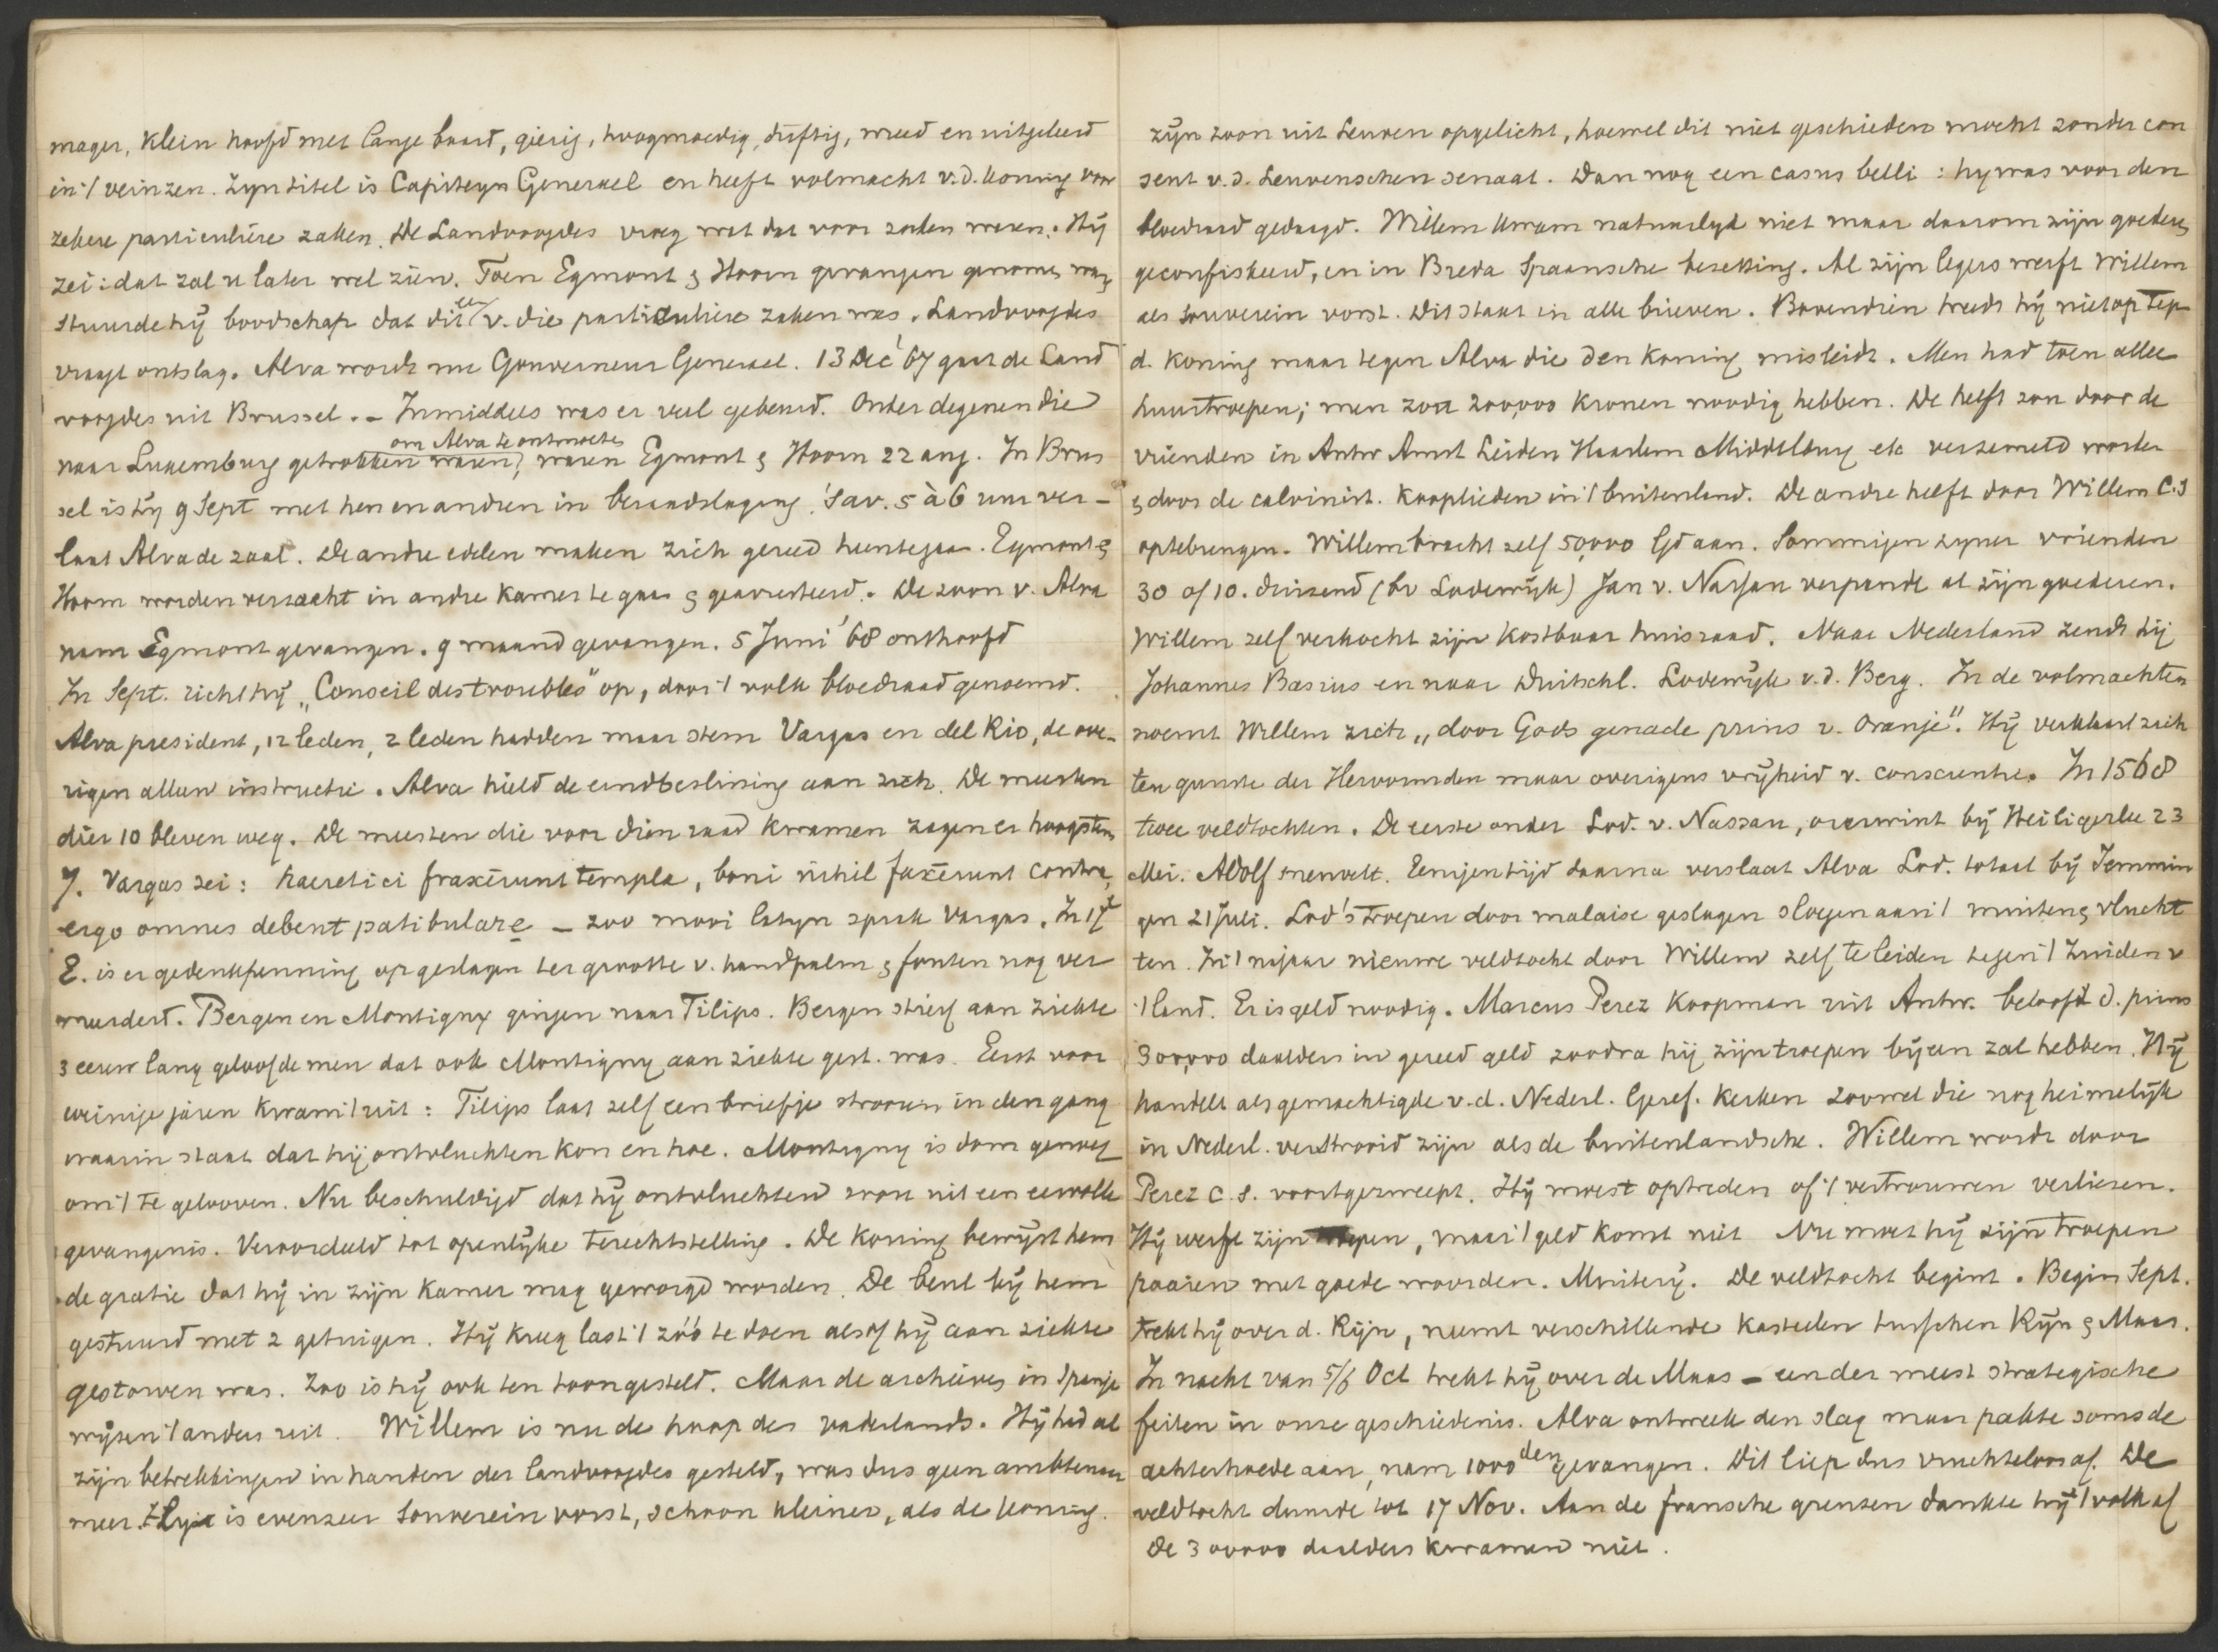 mager, klein hoofd met lange baard, gierig, hoogmoedig, driftig, wreed en uitgeleerd
in 't veinzen. Zyn titel is Capiteyn Generael en heeft volmacht v.d. Koning voor
zekere particuliere zaken. De Landvoogdes vroeg wat dat voor zaken waren. Hij
zei: dat zal u later wel zien. Toen Egmont & Hoorn gevangen genomen was
stuurde hij boodschap dat dit een v. die particuliere zaken was. Landvoogdes
vraagt ontslag. Alva wordt nu Gouverneur Generael. 13 Dec '67 gaat de Land
voogdes uit Brussel. – Inmiddels was er veel gebeurd. Onder degenen die
om Alva te ontmoeten
naar Luxemburg getrokken waren, waren Egmont & Hoorn 22 aug. In Brus
sel is hij 9 Sept met hen en andren in beraadslaging. 's av. 5 à 6 uur ver-
laat Alva de zaal. De andre edelen maken zich gereed heentegaan. Egmont &
Hoorn worden verzocht in andre kamer te gaan & gearresteerd. De zoon v. Alva
nam Egmont gevangen. 9 maand gevangen. 5 Juni '68 onthoofd
In Sept. richt hij „Conseil des troubles" op, door 't volk bloedraad genoemd.
Alva president, 12 leden, 2 leden hadden maar stem Vargas en del Rio, de ove-
rigen alleen instructie. Alva hield de eindbeslissing aan zich. De meesten
dier 10 bleven weg. De meesten die voor dien raad kwamen zagen er hoogstens
7. Vargas zei: haeretici fraxerunt templa, boni nihil faxerunt contra,
ergo omnes debent patibulare – zoo mooi latyn sprak Vargas. In 17e
E. is er gedenkpenning opgeslagen ter grootte v. handpalm & fouten nog ver
meerderd. Bergen en Montigny gingen naar Filips. Bergen stierf aan ziekte
3 eeuw lang geloofde men dat ook Montigny aan ziekte gest. was. Eerst voor
weinige jaren kwam 't uit: Filips laat zelf een briefje strooien in den gang
waarin staat dat hij ontvluchten kon en hoe. Montigny is dom genoeg
om 't te gelooven. Nu beschuldigd dat hij ontvluchten wou uit een eervolle
gevangenis. Veroordeeld tot openlyke terechtstelling. De koning bewijst hem
de gratie dat hij in zijn kamer mag geworgd worden. De beul bij hem
gestuurd met 2 getuigen. Hij kreeg last 't zóó te doen alsof hij aan ziekte
gestorven was. Zoo is hij ook ten toon gesteld. Maar de archieven in Spanje
wijzen 't anders uit. Willem is nu de hoop des vaderlands. Hij had al
zijn betrekkingen in handen der landvoogdes gesteld, was dus geen ambtenaar
meer. Hij is evenzeer souverein vorst, schoon kleiner, als de koning.
zijn zoon uit Leuven opgelicht, hoewel dit niet geschieden mocht zonder con
sent v.d. Leuvenschen senaat. Dan nog een casus belli: hy was voor den
bloedraad gedaagd. Willem kwam natuurlyk niet maar daarom zijn goederen
geconfiskeerd, en in Breda Spaansche bezetting. Al zijn legers werft Willem
als souverein vorst. Dit staat in alle brieven. Bovendien treedt hij niet op tegen
d. koning maar tegen Alva die den koning misleidt. Men had toen allee
huurtroepen; men zou 200,000 kronen noodig hebben. De helft zou door de
vrienden in Antw Amst Leiden Haarlem Middelburg etc verzameld worden
& door de calvinist. kooplieden in 't buitenland. De andre helft door Willem C.S
optebrengen. Willem bracht zelf 50,000 Gd aan. Sommigen zyner vrienden
30 of 10. duizend (bv Lodewijk) Jan v. Nassau verpandt al zijn goederen.
Willem zelf verkocht zijn kostbaar huisraad. Naar Nederland zendt hij
Johannes Basius en naar Duitschl. Lodewijk v.d. Berg. In de volmachten
noemt Willem zich „door Gods genade prins v. Oranje". Hij verklaart zich
ten gunste der Hervormden maar overigens vrijheid v. conscientie. In 1568
twee veldtochten. De eerste onder Lod. v. Nassau, overwint bij Heiligerlee 23
Mei. Adolf sneuvelt. Eenigen tijd daarna verslaat Alva Lod. totaal bij Jemmin
gen 21 Juli. Lod's troepen door malaise geslagen sloegen aan 't muiten & vlucht
ten. In 't najaar nieuwe veldtocht door Willem zelf te leiden tegen 't Zuiden v
't land. Er is geld noodig. Marcus Perez koopman uit Antw. belooft d. prins
300,000 daalders in gereed geld zoodra hij zijn troepen bijeen zal hebben. Hij
handelt als gemachtigde v.d. Nederl. Geref. kerken zoowel die nog heimelijk
in Nederl. verstrooid zijn als de buitenlandsche. Willem wordt door
Perez c.s. voortgezweept. Hij moest optreden of 't vertrouwen verliezen.
Hij werft zijn troepen, maar 't geld komt niet Nu moet hij zijn troepen
paaien met goede woorden. Muiterij. De veldtocht begint. Begin Sept.
trekt hij over d. Rijn, neemt verschillende kasteelen tusschen Rijn & Maas.
In nacht van 5/6 Oct trekt hij over de Maas – een der meest strategische
feiten in onze geschiedenis. Alva ontweek den slag maar pakte soms de
achterhoede aan, nam 1000den gevangen. Dit liep dus vruchteloos af. De
veldtocht duurde tot 17 Nov. Aan de fransche grenzen dankte hij 't volk af
De 300000 daalders kwamen niet.